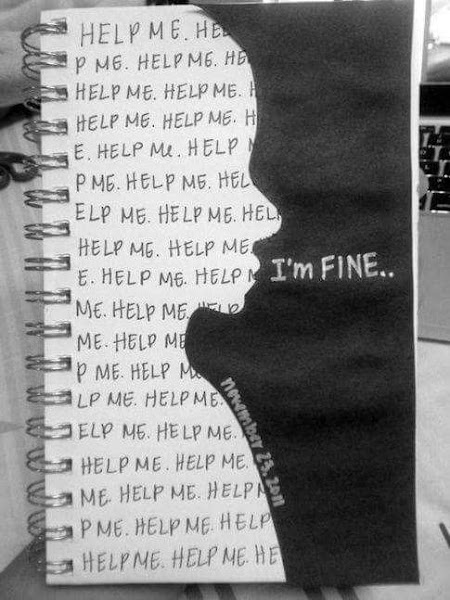 HELP ME. HE
P ME. HELP ME. HE
HELP ME. HELP ME. H
HELP ME. HELP ME. H
E. HELP Me. HELP
P ME. HELP ME. HEL
ELP ME. HELP ME. HEL
HELP ME. HELP ME.
I'm FINE..
E. HELP ME. HELP
ME. HELP ME. HELP
ME. HELP ME
P ME. HELP M
LP ME. HELP ME.
ELP ME. HELP ME.
HELP ME. HELP ME.
ME. HELP ME. HELP M
P ME. HELP ME. HELP
HELP ME. HELP ME. HE
november 23, 2011